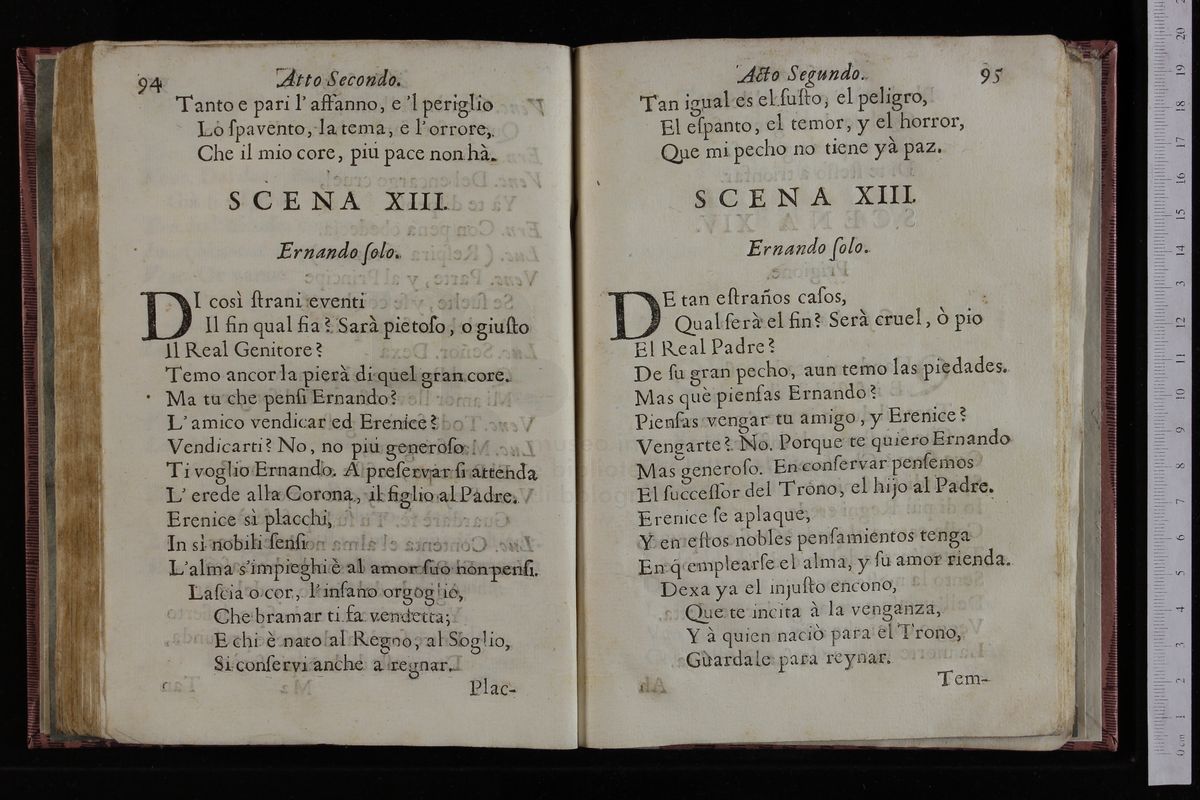 94 Atto Secondo.
Tanto e pari l' affanno, e 'l periglio
Lo ſpavento, la tema, e l'orrore,
Che il mio core, più pace non hà.
SCENA XIII.
Ernando ſolo.
DI così ſtrani eventi
Il fin qual fia? Sarà pietoſo, o giuſto
Il Real Genitore?
Temo ancor la pierà di quel gran core.
Ma tu che penſi Ernando?
L' amico vendicar ed Erenice?
Vendicarti? No, no più generoſo
Ti voglio Ernando. A preſervar ſi attenda
L' erede alla Corona, il figlio al Padre.
Erenice sì placchi,
In sì nobili ſenſi
L'alma s'impieghi è al amor ſuo non penſi.
Laſcia o cor, l'inſano orgoglio,
Che bramar ti fa vendetta;
E chi è nato al Regno, al Soglio,
Si conſervi anche a regnar.
Plac-
Acto Segundo. 95
Tan igual es el ſuſto, el peligro,
El eſpanto, el temor, y el horror,
Que mi pecho no tiene yà paz.
SCENA XIII.
Ernando ſolo.
DE tan eſtraños caſos,
Qual ſerà el fin? Serà cruel, ò pio
El Real Padre?
De ſu gran pecho, aun temo las piedades.
Mas què pienſas Ernando?
Pienſas vengar tu amigo, y Erenice?
Vengarte? No. Porque te quiero Ernando
Mas generoſo. En conſervar penſemos
El ſucceſſor del Trono, el hijo al Padre.
Erenice ſe aplaque,
Y en eſtos nobles penſamientos tenga
En q̃ emplearſe el alma, y ſu amor rienda.
Dexa ya el injuſto encono,
Que te incita à la venganza,
Y à quien naciò para el Trono,
Guardale para reynar.
Tem-